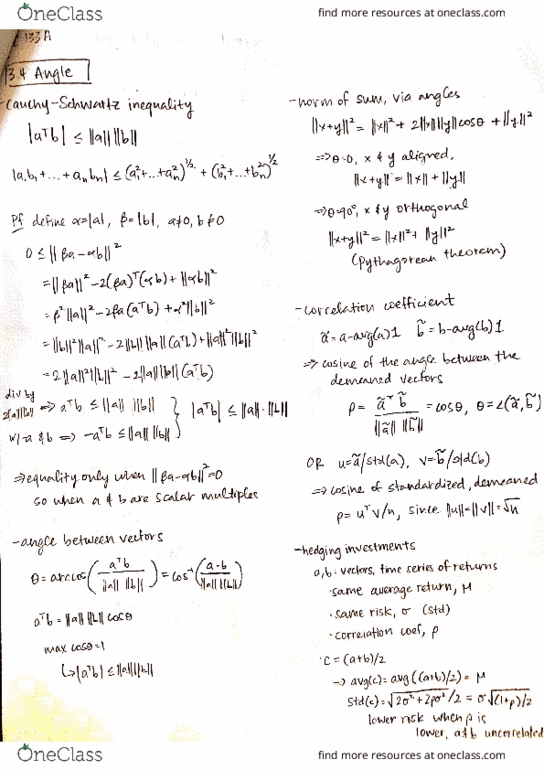 OneClass
find more resources at oneclass.com
133A
3.4 Angle
-Cauchy-Schwartz inequality
|aᵀb| ≤ ||a|| ||b||
|a₁b₁ + ... + aₙbₙ| ≤ (a₁² + ... + aₙ²)^½ + (b₁² + ... + bₙ²)^½
Pf define α=|a|, β=|b|, a≠0, b≠0
0 ≤ ||βa - αb||²
= ||βa||² - 2(βa)ᵀ(αb) + ||αb||²
= β²||a||² - 2βα(aᵀb) + α²||b||²
= ||b||²||a||² - 2||b|| ||a||(aᵀb) + ||a||²||b||²
= 2||a||²||b||² - 2||a|| ||b||(aᵀb)
div by 2||a|| ||b|| ⇒ aᵀb ≤ ||a|| ||b||
w/ -a & b ⇒ -aᵀb ≤ ||a|| ||b||
} |aᵀb| ≤ ||a||·||b||
⇒ equality only when ||βa-αb||²=0
so when a & b are scalar multiples
-angle between vectors
θ = arccos(aᵀb / ||a|| ||b||) = cos⁻¹(a·b / ||a|| ||b||)
aᵀb = ||a|| ||b|| cosθ
max cosθ = 1
↳ |aᵀb| ≤ ||a|| ||b||
-norm of sum, via angles
||x+y||² = ||x||² + 2||x|| ||y|| cosθ + ||y||²
⇒ θ=0, x & y aligned,
||x+y|| = ||x|| + ||y||
⇒ θ=90°, x & y orthogonal
||x+y||² = ||x||² + ||y||²
(Pythagorean theorem)
-correlation coefficient
ã = a-avg(a)1 b̃ = b-avg(b)1
⇒ cosine of the angle between the
demeaned vectors
ρ = ãᵀb̃ / ||ã|| ||b̃|| = cosθ, θ = ∠(ã, b̃)
OR u = ã/std(a), v = b̃/std(b)
⇒ cosine of standardized, demeaned
ρ = uᵀv/n, since ||u|| = ||v|| = √n
-hedging investments
a, b: vectors, time series of returns
·same average return, μ
·same risk, σ (std)
·correlation coef, ρ
·c = (a+b)/2
→ avg(c) = avg((a+b)/2) = μ
std(c) = √(2σ²+2ρσ²)/2 = σ√((1+ρ)/2)
lower risk when ρ is
lower, a & b uncorrelated
OneClass
find more resources at oneclass.com